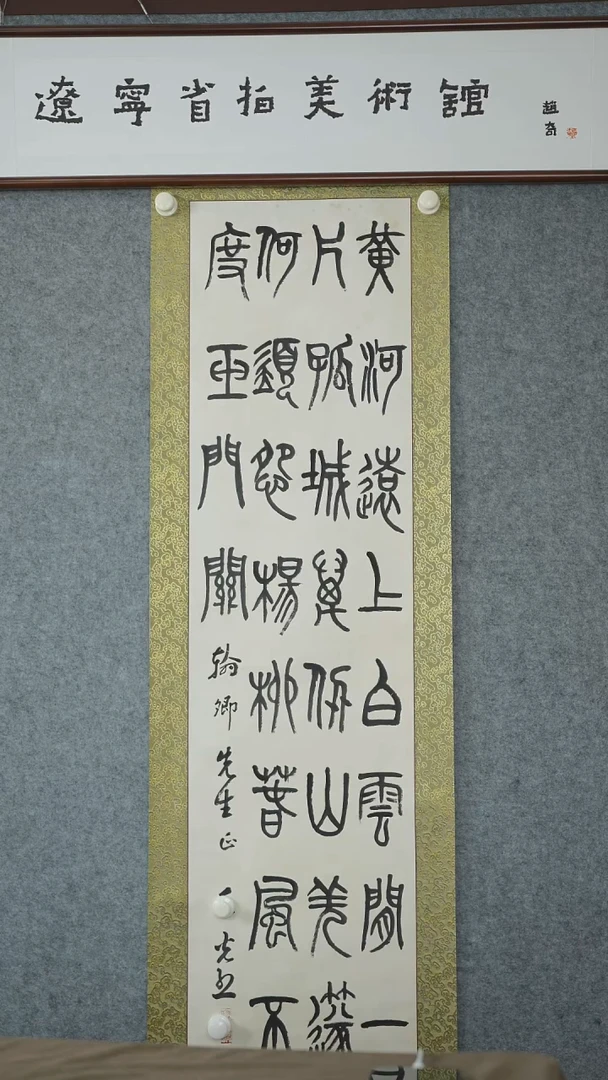 遼寧省拍美術館
趙奇
黄河遠上白雲閒一
片孤城萬仞山羌篴
何須怨楊柳萅風不
度玉門關
翰卿先生正